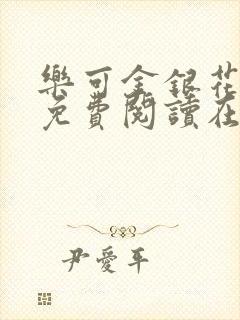 樂可金銀花
免費閱讀在
尹愛平